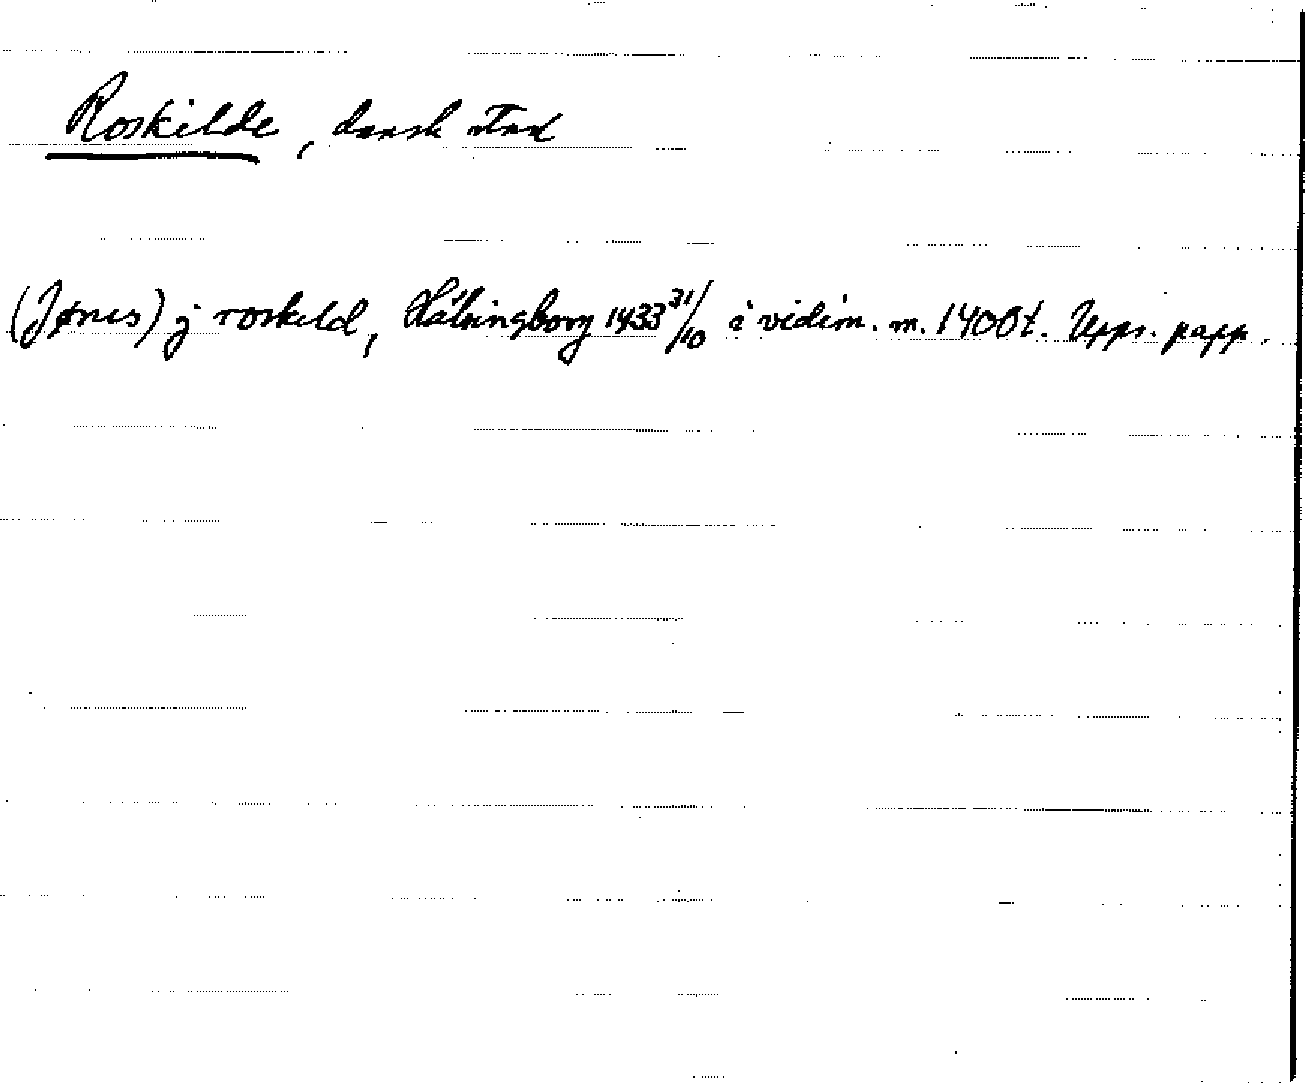 Roskilde, dansk stad
(Jønis) j roskild, Hälsingborg 1433 31/10 i vidim. m. 1400t. Upps. papp.